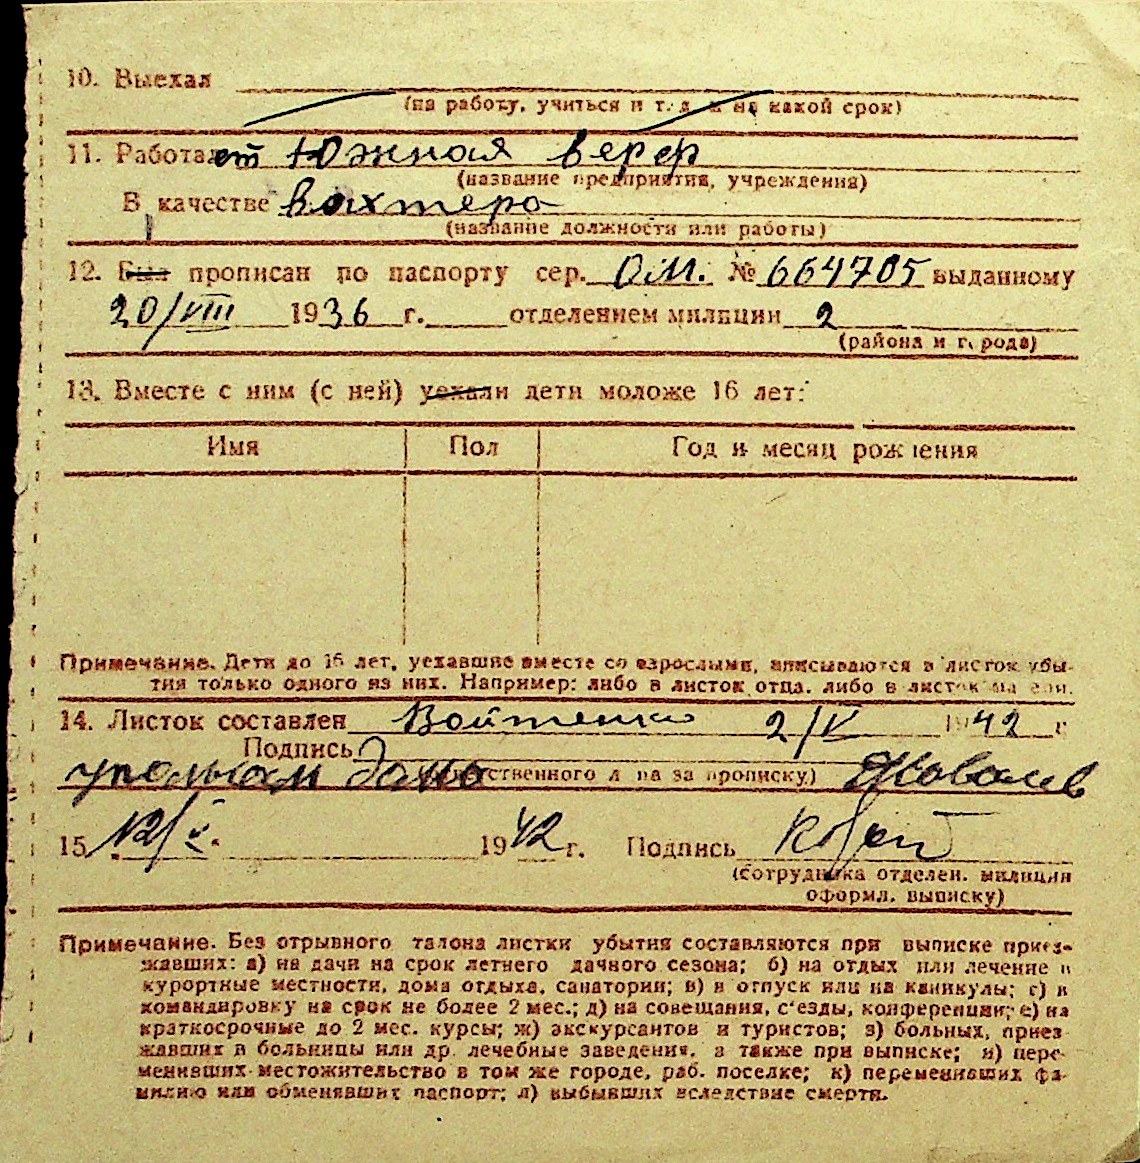 10. Выехал
(на работу, учиться и т. д. и на какой срок)
11. Работает Южная верф
(название предприятия, учреждения)
В качестве вахтера
(название должности или работы)
12. Был прописан по паспорту сер. О.М. № 664705 выданному
20/VIII 1936 г. отделением милиции 2
(района и города)
13. Вместе с ним (с ней) уехали дети моложе 16 лет:
Имя Пол Год и месяц рождения
Примечание. Дети до 16 лет, уехавшие вместе со взрослыми, вписываются в листок убы-
тия только одного из них. Например: либо в листок отца, либо в листок матери.
14. Листок составлен Войтенко 2/V 1942 г
Подпись
(ответственного лица за прописку)
15 12/V. 1942 г. Подпись
(сотрудника отделен. милиции
оформл. выписку)
Примечание. Без отрывного талона листки убытия составляются при выписке приез-
жавших: а) на дачи на срок летнего дачного сезона; б) на отдых или лечение в
курортные местности, дома отдыха, санатории; в) в отпуск или на каникулы; г) в
командировку на срок не более 2 мес.; д) на совещания, с'езды, конференции; е) на
краткосрочные до 2 мес. курсы; ж) экскурсантов и туристов; з) больных, приез-
жавших в больницы или др. лечебные заведения, а также при выписке; и) пере-
менивших местожительство в том же городе, раб. поселке; к) переменивших фа-
милию или обменявших паспорт; л) выбывших вследствие смерти.